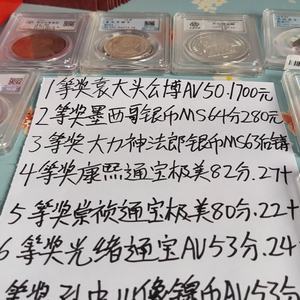 1等奖袁大头公博AV50.1700元
2等奖墨西哥银币MS64分280元
3等奖大力神法郎银币MS63后错
4等奖康熙通宝极美82分.27+
5等奖崇祯通宝极美80分.22+
6等奖光绪通宝AV53分.24
等奖孙中山像镍币AV53分